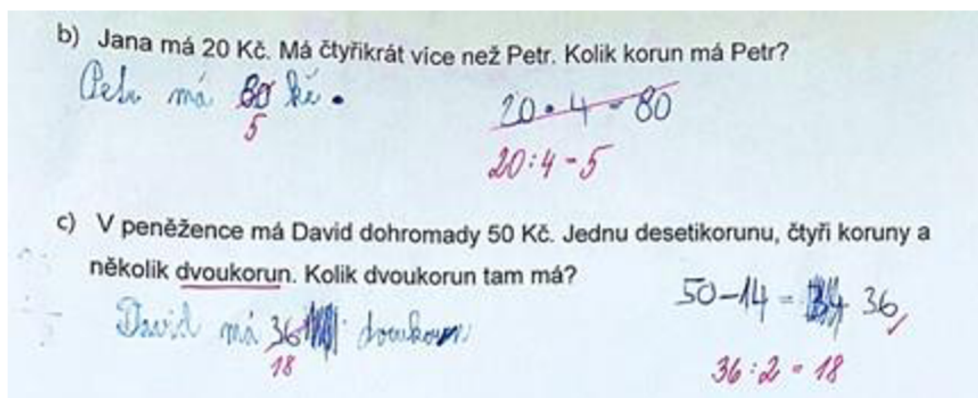 b) Jana má 20 Kč. Má čtyřikrát více než Petr. Kolik korun má Petr?
Petr má 80 kč.
5
20 · 4 - 80
20:4 - 5
c) V peněžence má David dohromady 50 Kč. Jednu desetikorunu, čtyři koruny a
několik dvoukorun. Kolik dvoukorun tam má?
50-14 = 36
David má 36 dvoukorun
18
36:2 = 18